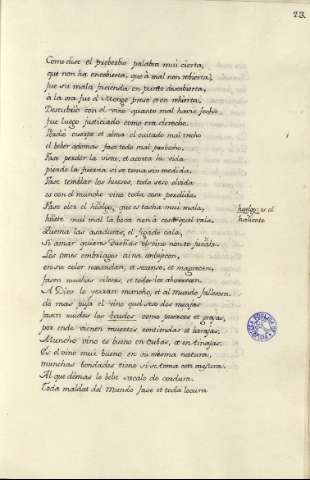 23.
Como dise el proberbio palabra mui cierta,
que non ha encubierta, que à mal non rebierta,
fue su mala facienda en punto descubierta,
à la ora fue el Monge preso et en rebierta.
Descubrió con el vino quanto mal havie fecho
fue luego justiciado como era derecho.
Perdió cuerpo et alma el cuitado mal trecho
el beber ademas fase todo mal probecho.
Fase perder la vista, et acorta la vida
pierde la fuerza si se toma sin medida.
Fase temblar los huesos, todo seso olvida
es con el mucho vino toda cosa perdida.
Fase oler el huelgo, que es tacha mui mala,
huele mui mal la boca non à cosa quel vala,
huelgo: es el
haliento
Quema las asaduras, el figado cala,
Si amar quieres Dueñas el vino non te
Los omes embriagos aina
en su color non andan, et secanse, et magrecen,
fasen muchas vilesas, et todos los aborrecen
A Dios lo yerran mucho, et al mundo fallescen.
dó mas puja el vino quel seso dos meajas
fasen ruidos los beudos como puercos et grajas,
por ende vienen muertes contiendas et barajas,
Mucho vino es bueno en cubas, et en tinajas.
Es el vino mui bueno en su mesma natura,
munchas bondades tiene si se toma con mesura,
Al que demàs lo bebe sacalo de cordura.
Toda maldat del Mundo fase et toda locura